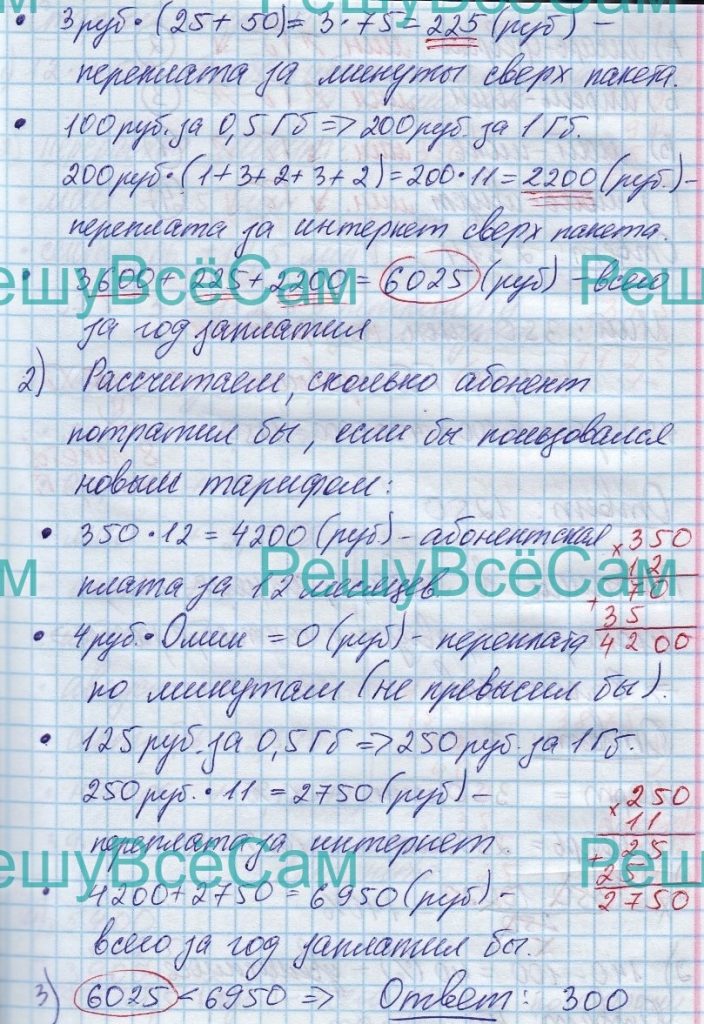 • 3 руб • (25 + 50) = 3 • 75 = 225 (руб) –
переплата за минуты сверх пакета.
• 100 руб. за 0,5 Гб => 200 руб. за 1 Гб.
200 руб • (1 + 3 + 2 + 3 + 2) = 200 • 11 = 2200 (руб.) –
переплата за интернет сверх пакета.
РешуВсёСам РешуВсёСам
• 3600 + 225 + 2200 = 6025 (руб) – всего
за год заплатил
2) Рассчитаем, сколько абонент
потратил бы, если бы пользовался
новым тарифом:
• 350 • 12 = 4200 (руб) – абонентская
плата за 12 месяцев
× 350
12
РешуВсёСам
+ 70
35
4200
• 4 руб. • 0 мин = 0 (руб) – переплата
по минутам (не превысил бы).
• 125 руб. за 0,5 Гб => 250 руб. за 1 Гб.
250 руб. • 11 = 2750 (руб) –
переплата за интернет.
× 250
11
+ 25
25
2750
РешуВсёСам РешуВсёСам
• 4200 + 2750 = 6950 (руб) –
всего за год заплатил бы.
3) 6025 < 6950 => Ответ: 300